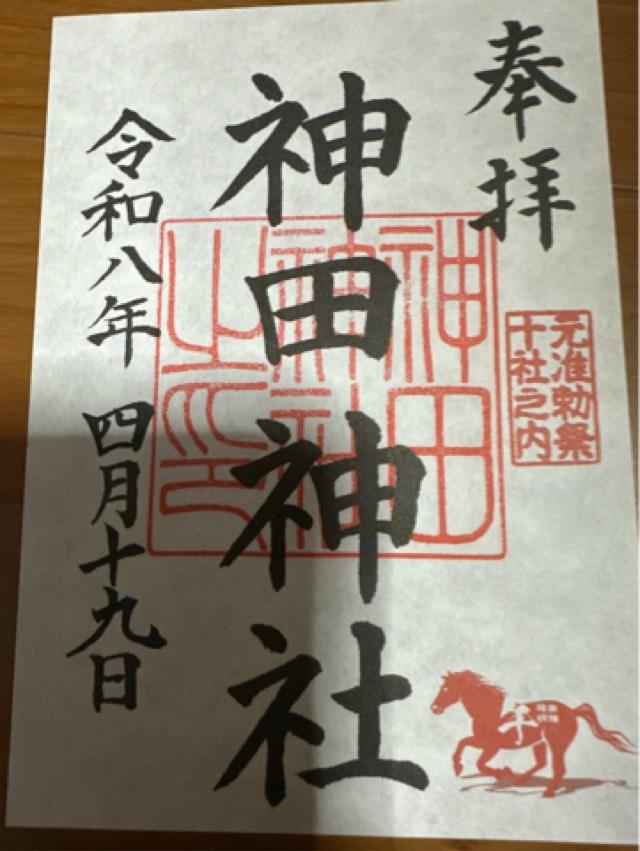 奉拝
元准勅祭
十社之内
神田神社
神田
神社
之印
令和八年 四月十九日